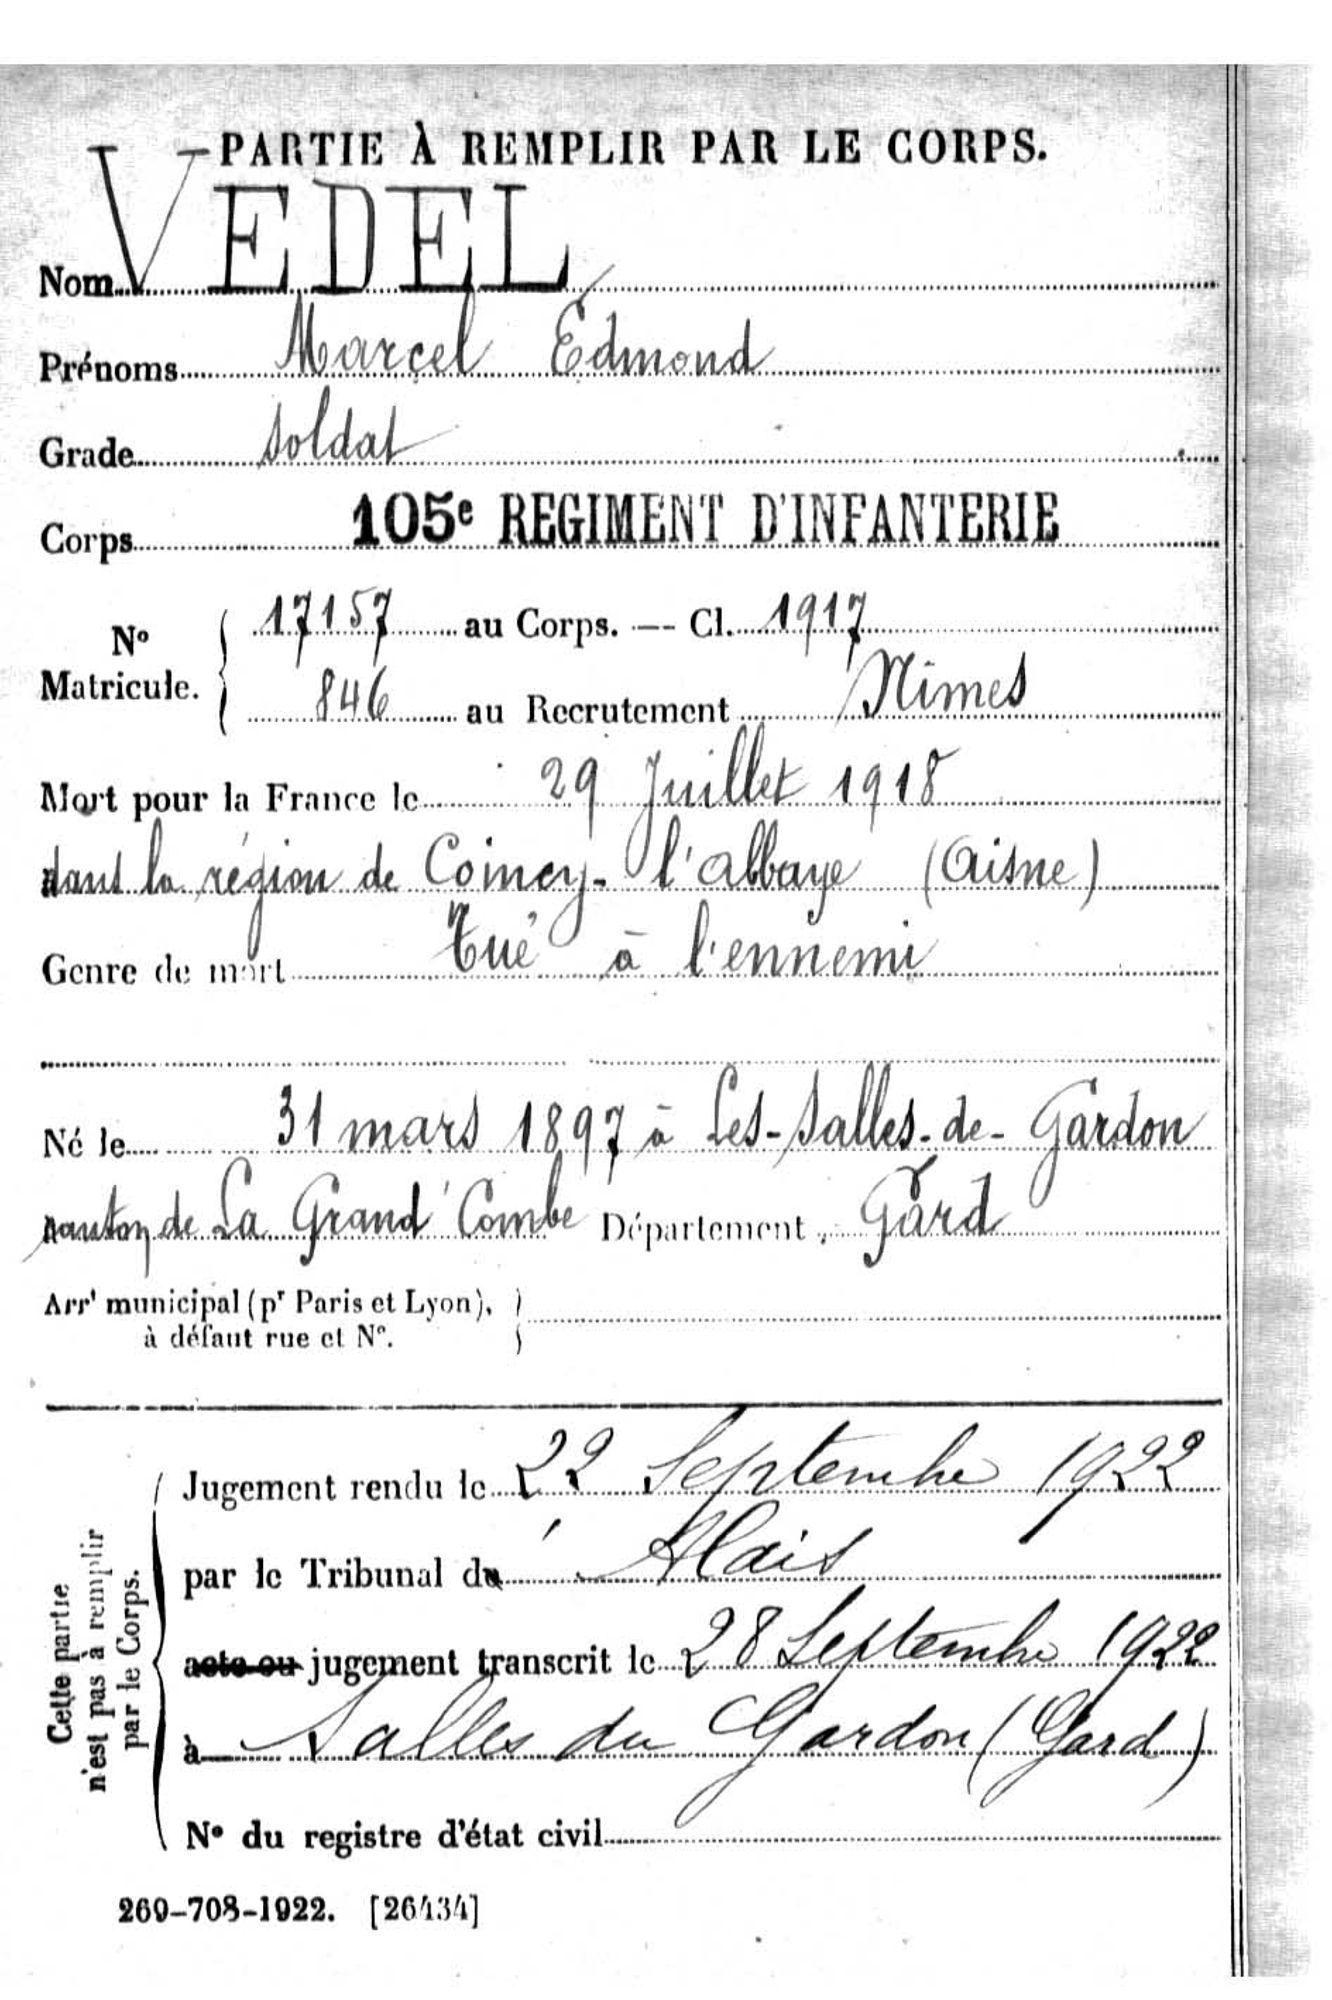 PARTIE À REMPLIR PAR LE CORPS.
Nom VEDEL
Prénoms Marcel Edmond
Grade soldat
Corps 105e REGIMENT D'INFANTERIE
No Matricule. { 17157 au Corps. — Cl. 1917
846 au Recrutement Nîmes
Mort pour la France le 29 Juillet 1918
dans la région de Coincy-l'abbaye (Aisne)
Genre de mort Tué à l'ennemi
Né le 31 mars 1897 à Les-Salles-de-Gardon
canton de La Grand'Combe Département Gard
Arrt municipal (pr Paris et Lyon), }
à défaut rue et No.
Cette partie
n'est pas à remplir
par le Corps.
Jugement rendu le 22 Septembre 1922
par le Tribunal d' Alais
acte ou jugement transcrit le 28 Septembre 1922
à Salles du Gardon (Gard)
No du registre d'état civil
269-708-1922. [26434]